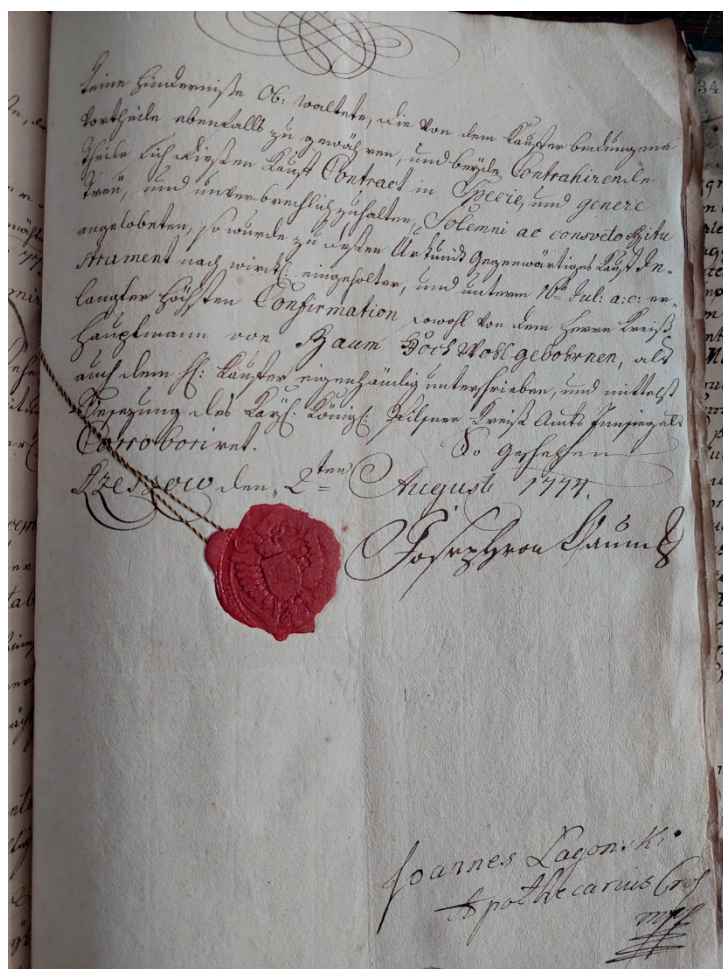 keine Hinderniße Ob: waltete, die von dem Kaufer bedungene
Vortheile ebenfalls zu gewähren, und beyde Contrahirende
Theile sich diesen Kauf Contract in Specie, und genere
treu, und unverbrechlich zuhalten, Solemni ac consveto Ritu
angelobeten, so wurde zu deßen Urkund Gegenwärtiges Kaufs In-
strument nach eingeholter, und unterm 16ten Jul: a: c: er-
langter höchsten Confirmation sowohl von dem Herrn Kreiß
Hauptmann von Baum Hoch Wohlgebohrnen, als
auch dem H: Kaufer eigenhändig unterschrieben, und mittelst
des Kays: Königl: Pilsner Kreiß Amts Innsiegels
Corroboriret. So Geschehen
Rzeszow den 2ten Augusti 1777.
Joseph von Baum
Joannes Lagonski
Apothecarius
mpp
34